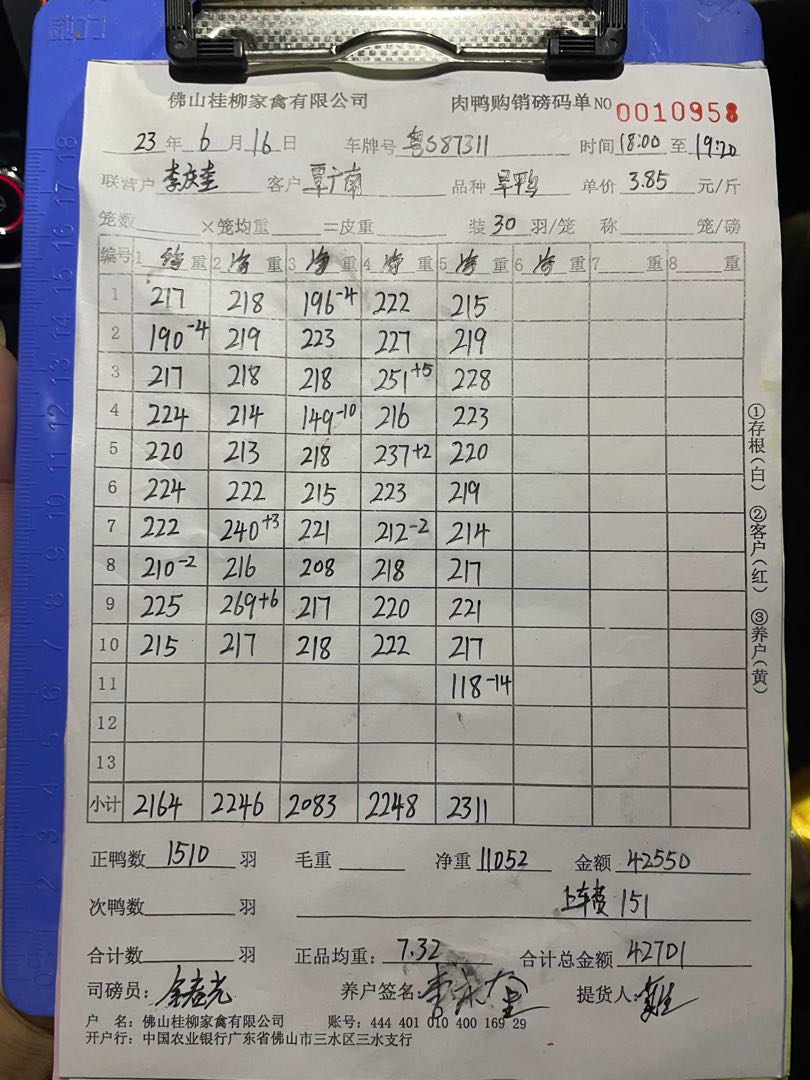 佛山桂柳家禽有限公司 肉鸭购销磅码单 NO 0010958
23 年 6 月 16 日 车牌号 粤S87311 时间 18:00 至 19:20
联营户 李庆奎 客户 覃广南 品种 旱鸭 单价 3.85 元/斤
笼数 ×笼均重 =皮重 装 30 羽/笼 称 笼/磅
编号 1 重 2 净 重 3 净 重 4 净 重 5 净 重 6 净 重 7 重 8 重
1 217 218 196-4 222 215
2 190-4 219 223 227 219
3 217 218 218 251+5 228
4 224 214 149-10 216 223
5 220 213 218 237+2 220
6 224 222 215 223 219
7 222 240+3 221 212-2 214
8 210-2 216 208 218 217
9 225 269+6 217 220 221
10 215 217 218 222 217
11 118-14
12
13
小计 2164 2246 2083 2248 2311
①存根(白) ②客户(红) ③养户(黄)
正鸭数 1510 羽 毛重 净重 11052 金额 42550
次鸭数 羽 上车费 151
合计数 羽 正品均重: 7.32 合计总金额 42701
司磅员: 养户签名: 提货人:
户 名: 佛山桂柳家禽有限公司 账号: 444 401 010 400 169 29
开户行: 中国农业银行广东省佛山市三水区三水支行